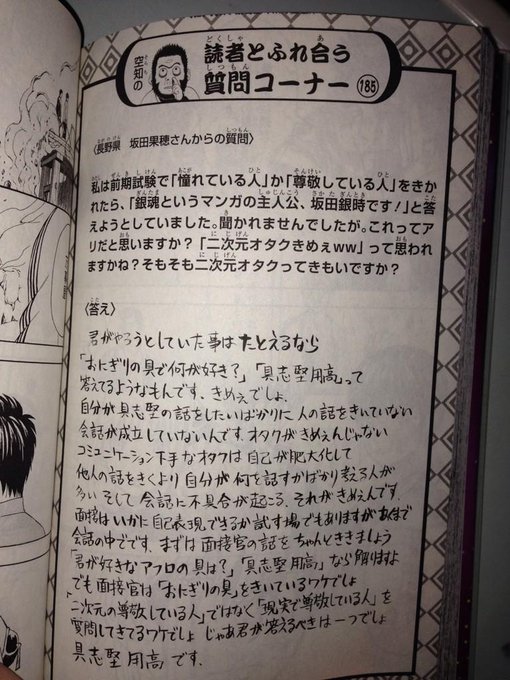 空知の
読者とふれ合う
質問コーナー
185
〈長野県　坂田果穂さんからの質問〉
私は前期試験で「憧れている人」か「尊敬している人」をきか
れたら、「銀魂というマンガの主人公、坂田銀時です!」と答
えようとしていました。聞かれませんでしたが。これってア
リだと思いますか?「二次元オタクきめぇww」って思われ
ますかね?そもそも二次元オタクってきもいですか?
〈答え〉
君がやろうとしていた事はたとえるなら
「おにぎりの具で何が好き?」「具志堅用高」って
答えてるようなもんです、きめぇでしょ、
自分が具志堅の話をしたいばかりに人の話をきいていない
会話が成立していないんです、オタクがきめぇんじゃない
コミュニケーション下手なオタクは自己が肥大化して
他人の話をきくより自分が何を話すかばかり考える人が
多いそして会話に不具合が起こる、それがきめぇんです、
面接はいかに自己表現できるか試す場でもありますがあくまで
会話の中でです、まずは面接官の話をちゃんとききましょう
「君が好きなアフロの具は?」「具志堅用高」なら解りますよ
でも面接官は「おにぎりの具」をきいているワケでしょ
「二次元の尊敬している人」ではなく「現実で尊敬している人」を
質問してきてるワケでしょ じゃあ君が答えるべきは一つでしょ
具志堅用高です、